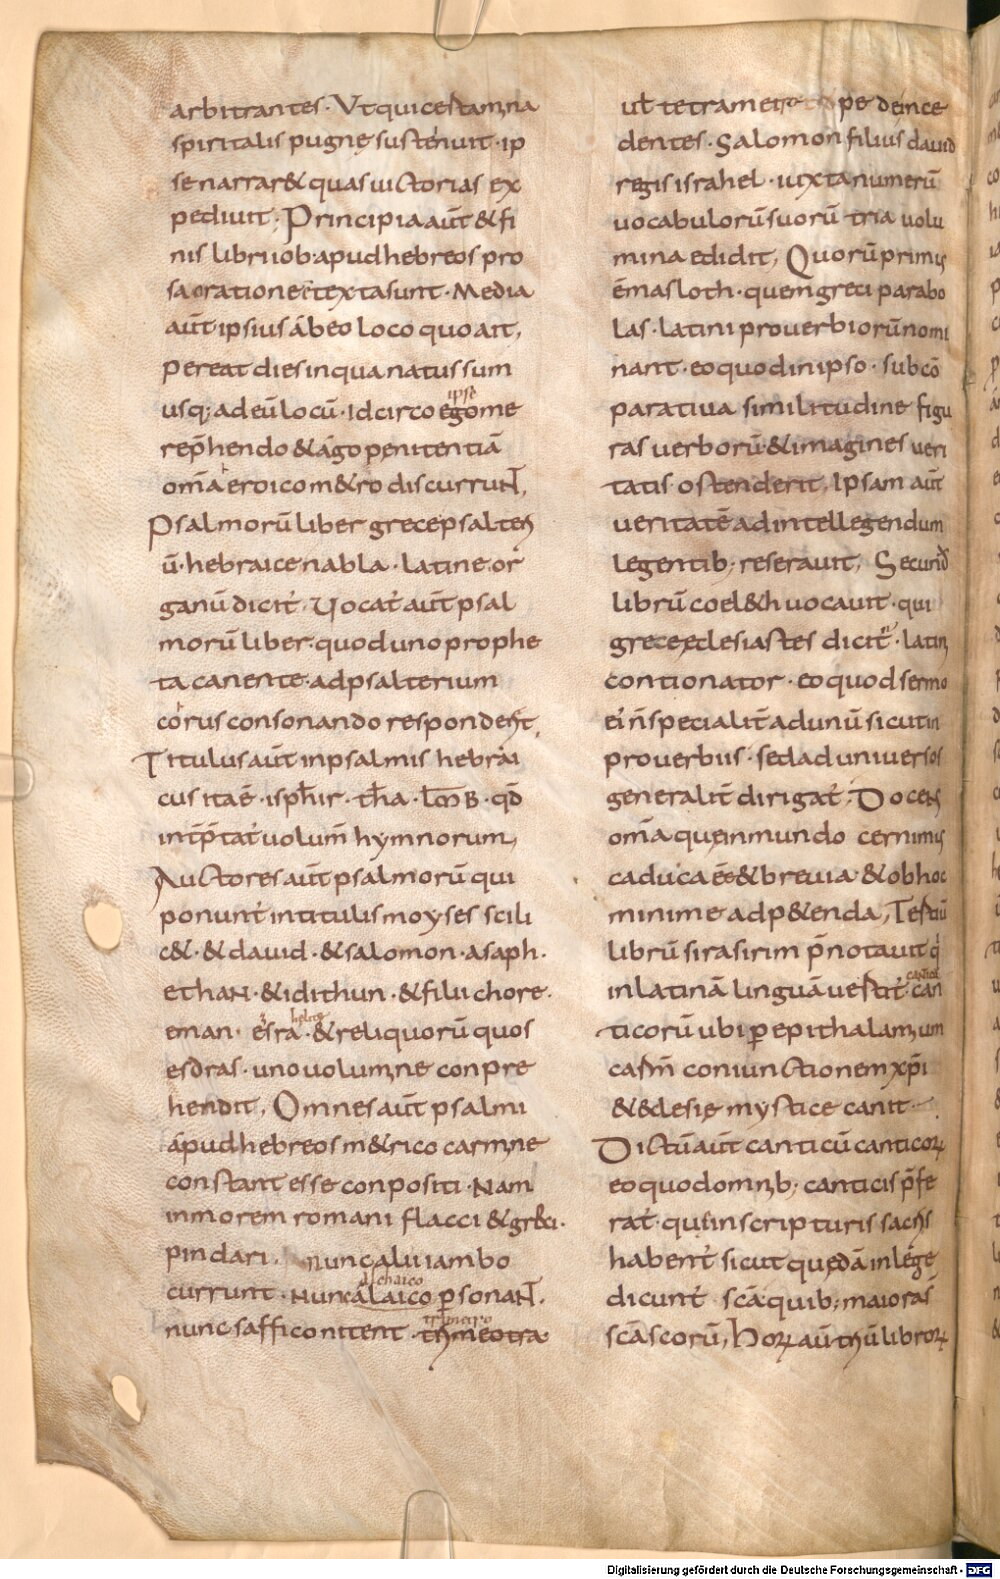 arbitrantes · Vt qui certamina
spiritalis pugnę sustenuit · ip
se narrar& quas uictorias ex
pediuit · Principia aūt & fi
nis libri iob apud hebreos pro
sa oratione ctexta sunt · Media
aūt ipsius ab eo loco quo ait,
pereat dies in qua natus sum
usq; ad eū locū · Idcirco ego ipse me
rep̄hendo & ago penitentiā
om̄a eroico m&ro discurruNT,
Psalmorū liber grece psalteri
ū · hebraice nabla · latine or
ganū dicit᷑ · Vocat᷑ aūt psal
morū liber · quod uno prophe
ta canente · ad psalterium
corus consonando respondent,
Titulus aūt in psalmis hebrai
cus ita ē · isph̄ir · th̄a · lom̄ · qd̄
int̄p̄tat᷑ uolum̄ hymnorum,
Auctores aūt psalmorū qui
ponunt᷑ in titulis moyses scili
c& · & dauid · & salomon · asaph ·
ethaN · & idithun · & filii chore ·
eman · esra · & reliquorū quos
esdras · uno uolumine conpre
hendit, Omnes aūt psalmi
apud hebreos m&rico carmine
constant esse conpositi · Nam
in morem romani flacci & greci ·
pindari · nunc alii iambo
currunt · Nunc alaico achaico p̱sonaNT ·
nunc saffico nitent · trimetro
ul̄ tetrametro pede ince
dentes · Salomon filius dauid
regis israhel · iuxta numerū
uocabulorū suorū tria uolu
mina edidit, Quorū primus
ē masloth · quem greci parabo
las · latini prouerbiorū nomi
nant · eo quod in ipso · sub cō
paratiua similitudine figu
ras uerborū · & imagines ueri
tatis ostenderit, Ipsam aūt
ueritatē ad intellegendum
legentib; reserauit, Secund
librū coel&h uocauit · qui
grece ecclesiastes dicit᷑ · latin
contionator · eo quod sermo
ei᷑ n̄ specialit̄ ad unū sicut in
prouerbiis · sed ad uniuersos
generalit̄ dirigat᷑, Docens
om̄a que in mundo cernimus
caduca ēē & breuia · & ob hoc
minime adp&enda, Tertiū
librū sirasirim p̄notauit q
in latinā linguā uertit᷑ · can
ticorū ubi p̱ epithalamium
carm̄ coniunctionem xp̄i
& ecclesię mystice canit
Dictū aūt canticū canticoꝝ
eo quod omnib; canticis p̄fe
rat᷑ · que in scripturis sacris
habent᷑ sicut quędā in lege
dicunt᷑ scā · quib; maiora s̄
scā scorū, Hoꝝ aūt triū libroꝝ
Digitalisierung gefördert durch die Deutsche Forschungsgemeinschaft - DFG